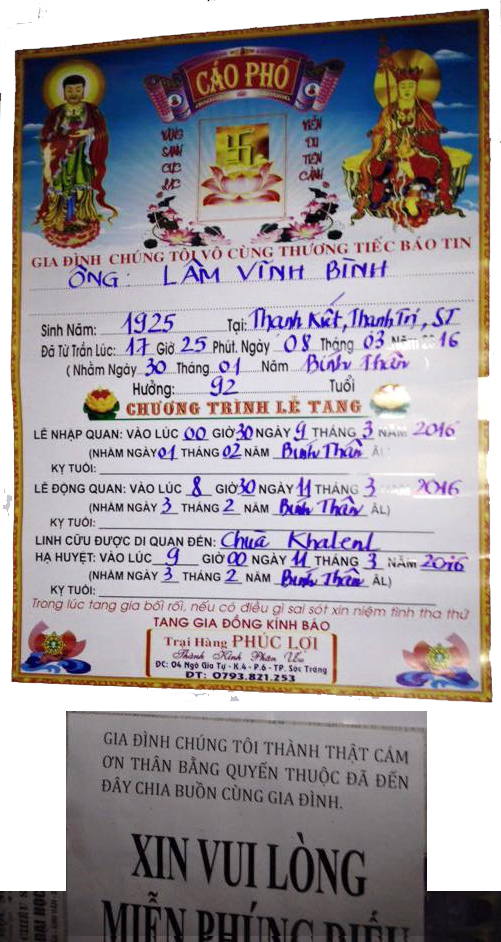 CÁO PHÓ
VÃNG SANH CỰC LẠC
VIỄN DU TIÊN CẢNH
GIA ĐÌNH CHÚNG TÔI VÔ CÙNG THƯƠNG TIẾC BÁO TIN
ÔNG: LÂM VĨNH BÌNH
Sinh Năm: 1925 Tại: Thạnh Kiết, Thạnh Trị, ST
Đã Từ Trần Lúc: 17 Giờ 25 Phút. Ngày 08 Tháng 03 Năm 2016
(Nhằm Ngày 30 Tháng 01 Năm Bính Thân)
Hưởng: 92 Tuổi
CHƯƠNG TRÌNH LỄ TANG
LỄ NHẬP QUAN: VÀO LÚC 00 GIỜ 30 NGÀY 9 THÁNG 3 NĂM 2016
(NHẰM NGÀY 01 THÁNG 02 NĂM Bính Thân ÂL)
KỴ TUỔI:
LỄ ĐỘNG QUAN: VÀO LÚC 8 GIỜ 30 NGÀY 11 THÁNG 3 NĂM 2016
(NHẰM NGÀY 3 THÁNG 2 NĂM Bính Thân ÂL)
KỴ TUỔI:
LINH CỮU ĐƯỢC DI QUAN ĐẾN: Chùa Khalenl
HẠ HUYỆT: VÀO LÚC 9 GIỜ 00 NGÀY 11 THÁNG 3 NĂM 2016
(NHẰM NGÀY 3 THÁNG 2 NĂM Bính Thân ÂL)
KỴ TUỔI:
Trong lúc tang gia bối rối, nếu có điều gì sai sót xin niệm tình tha thứ
TANG GIA ĐỒNG KÍNH BÁO
Trại Hàng PHÚC LỢI
Thành Kính Phân Ưu
ĐC: 04 Ngô Gia Tự - K.4 - P.6 - TP. Sóc Trăng
ĐT: 0793.821.253
GIA ĐÌNH CHÚNG TÔI THÀNH THẬT CÁM
ƠN THÂN BẰNG QUYẾN THUỘC ĐÃ ĐẾN
ĐÂY CHIA BUỒN CÙNG GIA ĐÌNH.
XIN VUI LÒNG
MIỄN PHÚNG ĐIẾU